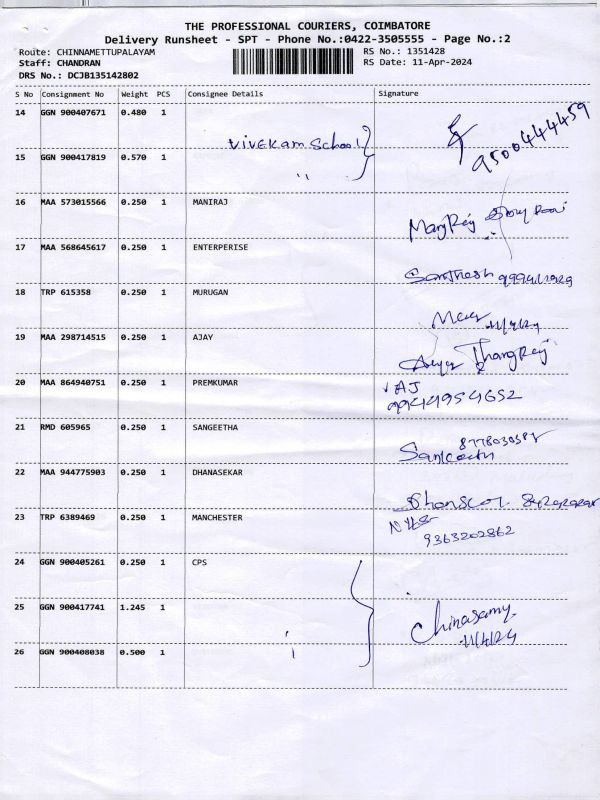 THE PROFESSIONAL COURIERS, COIMBATORE
Delivery Runsheet - SPT - Phone No.:0422-3505555 - Page No.:2
Route: CHINNAMETTUPALAYAM RS No.: 1351428
Staff: CHANDRAN RS Date: 11-Apr-2024
DRS No.: DCJB135142802
S No Consignment No Weight PCS Consignee Details Signature
14 GGN 900407671 0.480 1
Vivekam School 9500444459
15 GGN 900417819 0.570 1 ,,
16 MAA 573015566 0.250 1 MANIRAJ
17 MAA 568645617 0.250 1 ENTERPERISE
Santhosh
18 TRP 615358 0.250 1 MURUGAN
11/4/24
19 MAA 298714515 0.250 1 AJAY
ThangRaj
20 MAA 864940751 0.250 1 PREMKUMAR AJ
9944954652
21 RMD 605965 0.250 1 SANGEETHA
22 MAA 944775903 0.250 1 DHANASEKAR
23 TRP 6389469 0.250 1 MANCHESTER
9363202862
24 GGN 900405261 0.250 1 CPS
25 GGN 900417741 1.245 1 Chinasamy
11/4/24
26 GGN 900408038 0.500 1